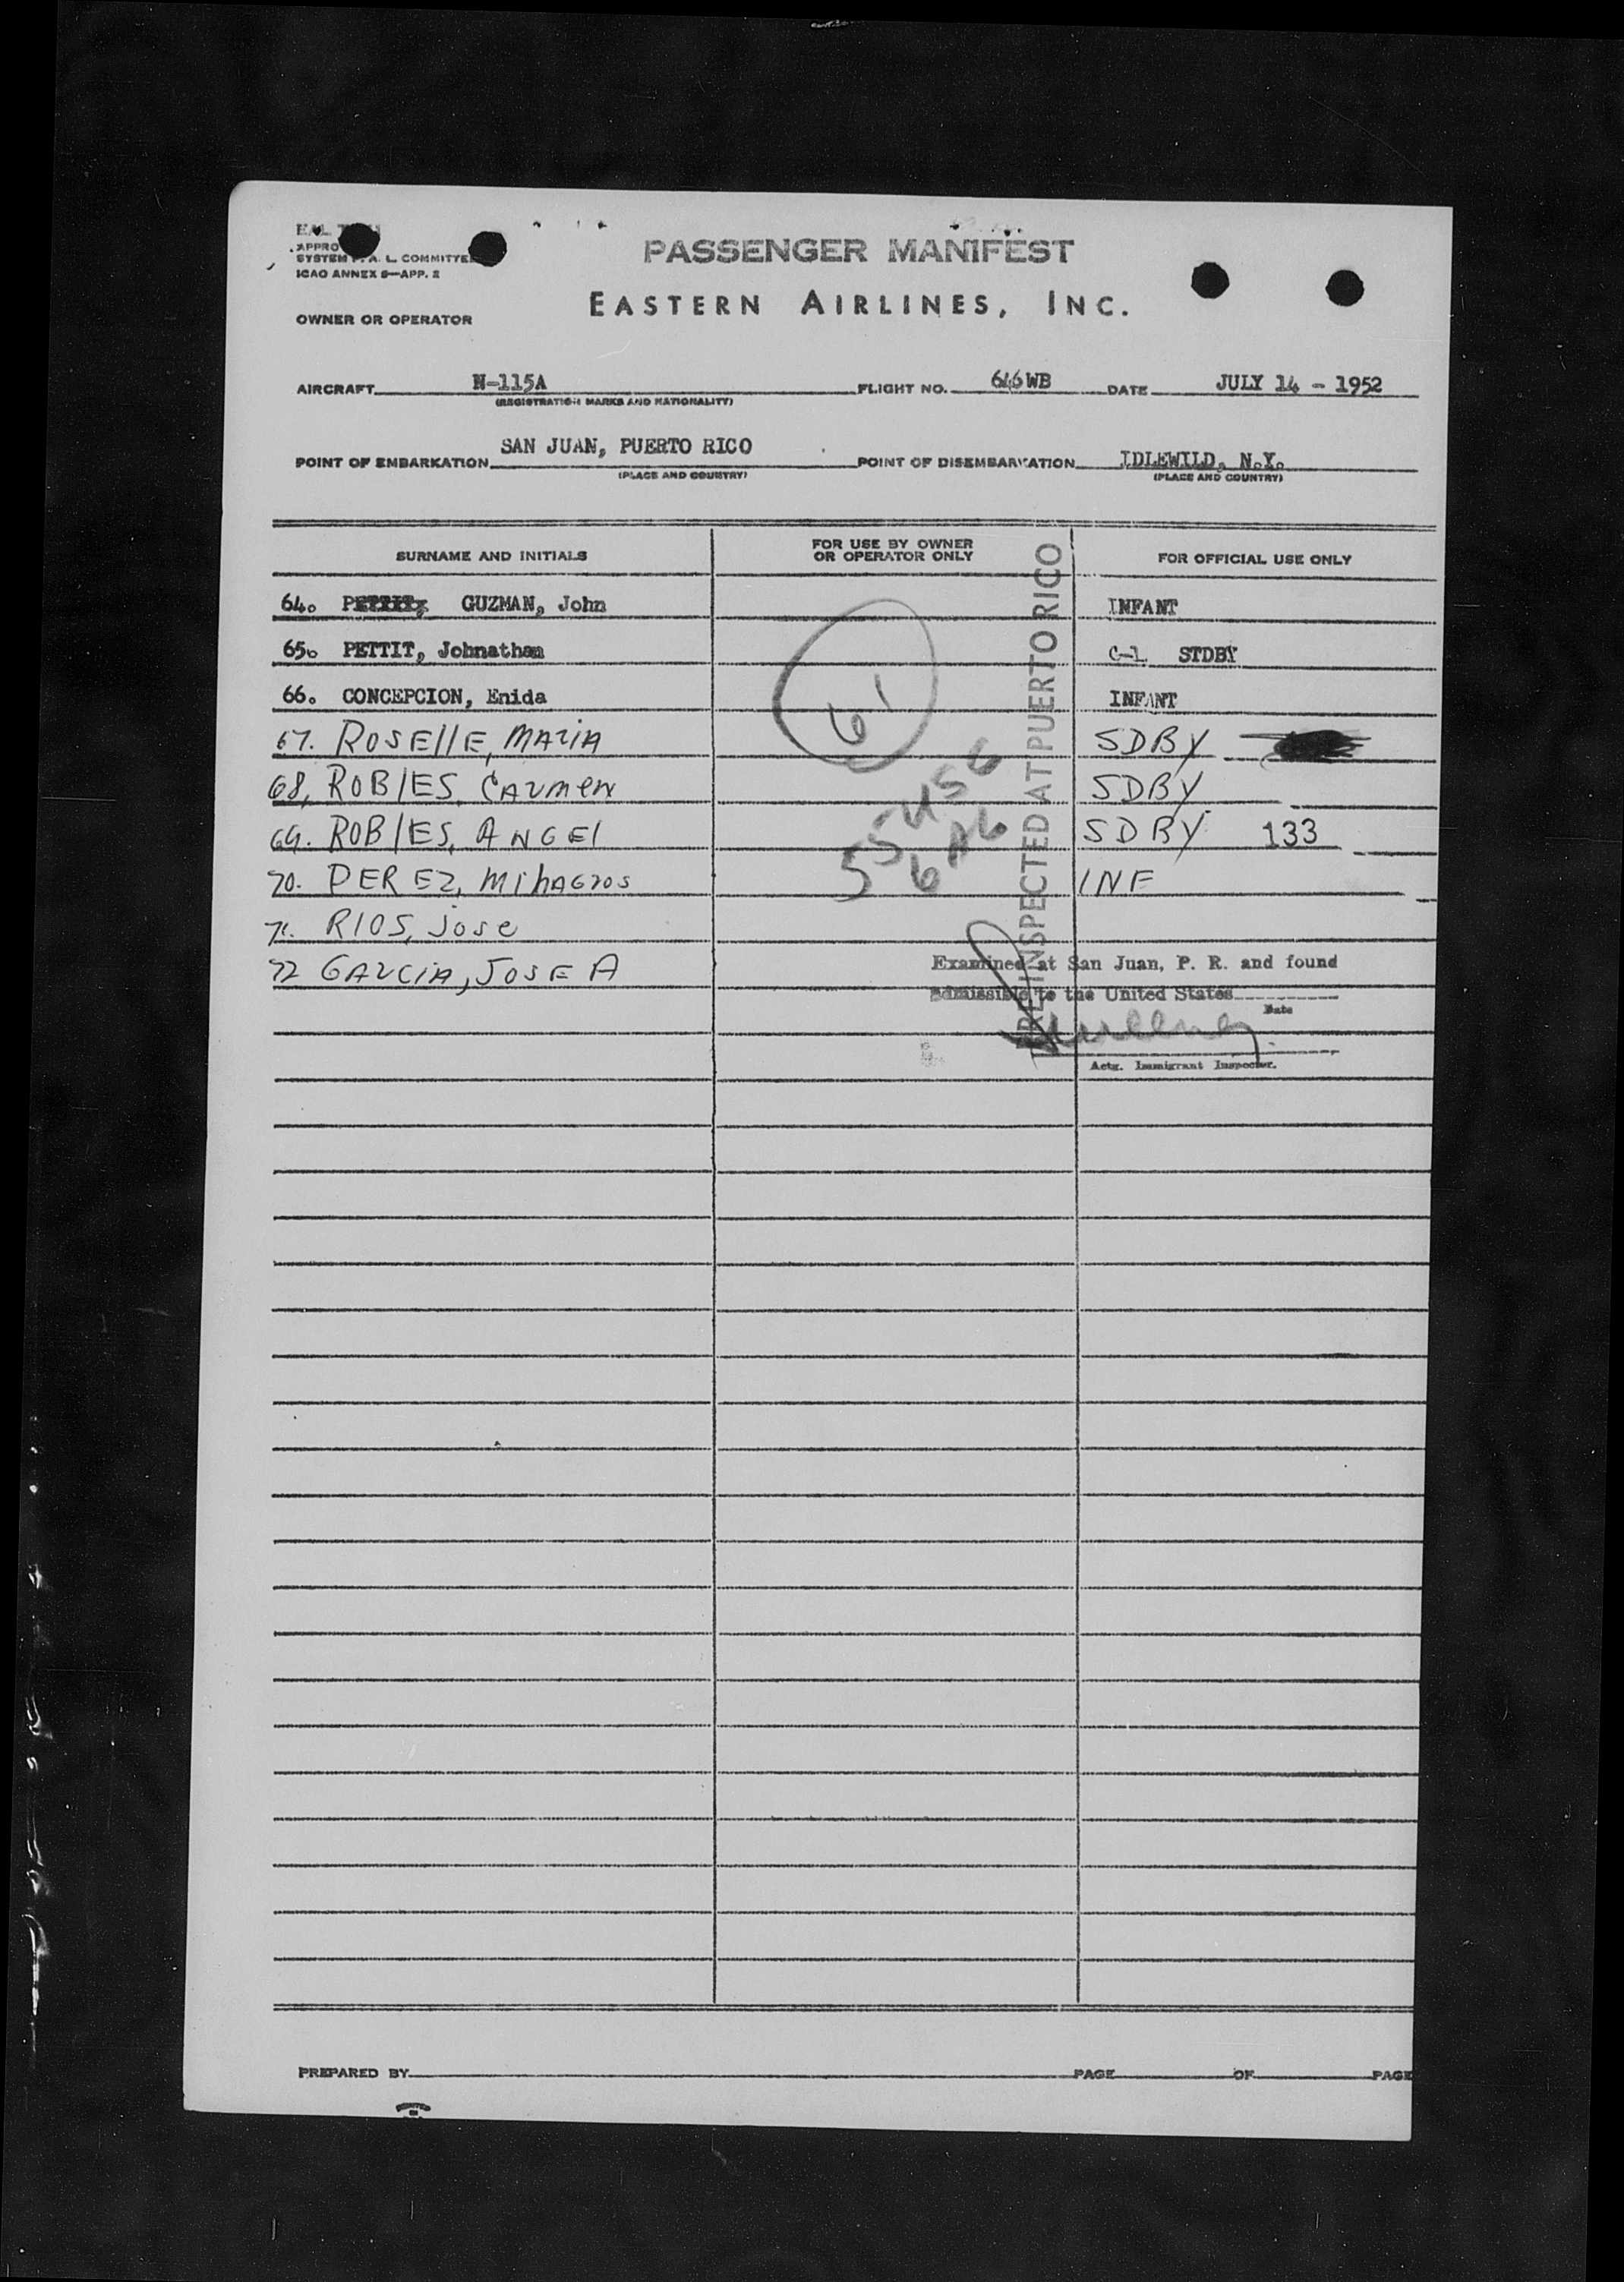 PASSENGER MANIFEST
SYSTEM A. L. COMMITTEE
ICAO ANNEX 9—APP. 2
EASTERN AIRLINES, INC.
OWNER OR OPERATOR
AIRCRAFT N-115A FLIGHT NO. 646WB DATE JULY 14 - 1952
(REGISTRATION MARKS AND NATIONALITY)
POINT OF EMBARKATION SAN JUAN, PUERTO RICO POINT OF DISEMBARKATION IDLEWILD, N.Y.
(PLACE AND COUNTRY) (PLACE AND COUNTRY)
SURNAME AND INITIALS FOR USE BY OWNER OR OPERATOR ONLY FOR OFFICIAL USE ONLY
64. GUZMAN, John INFANT
65. PETTIT, Johnathan C-1 STDBY
66. CONCEPCION, Enida INFANT
67. ROSEllE, MARIA SDBY
68. ROBlES, CARMEN SDBY
69. ROBlES, ANGEl SDBY 133
70. PEREZ, MilAGROS INF
71. RIOS, Jose
72 GARCIA, JOSE A
61
PREINSPECTED AT PUERTO RICO
Examined at San Juan, P. R. and found
admissible to the United States
Date
Actg. Immigrant Inspector.
PREPARED BY PAGE OF PAGE